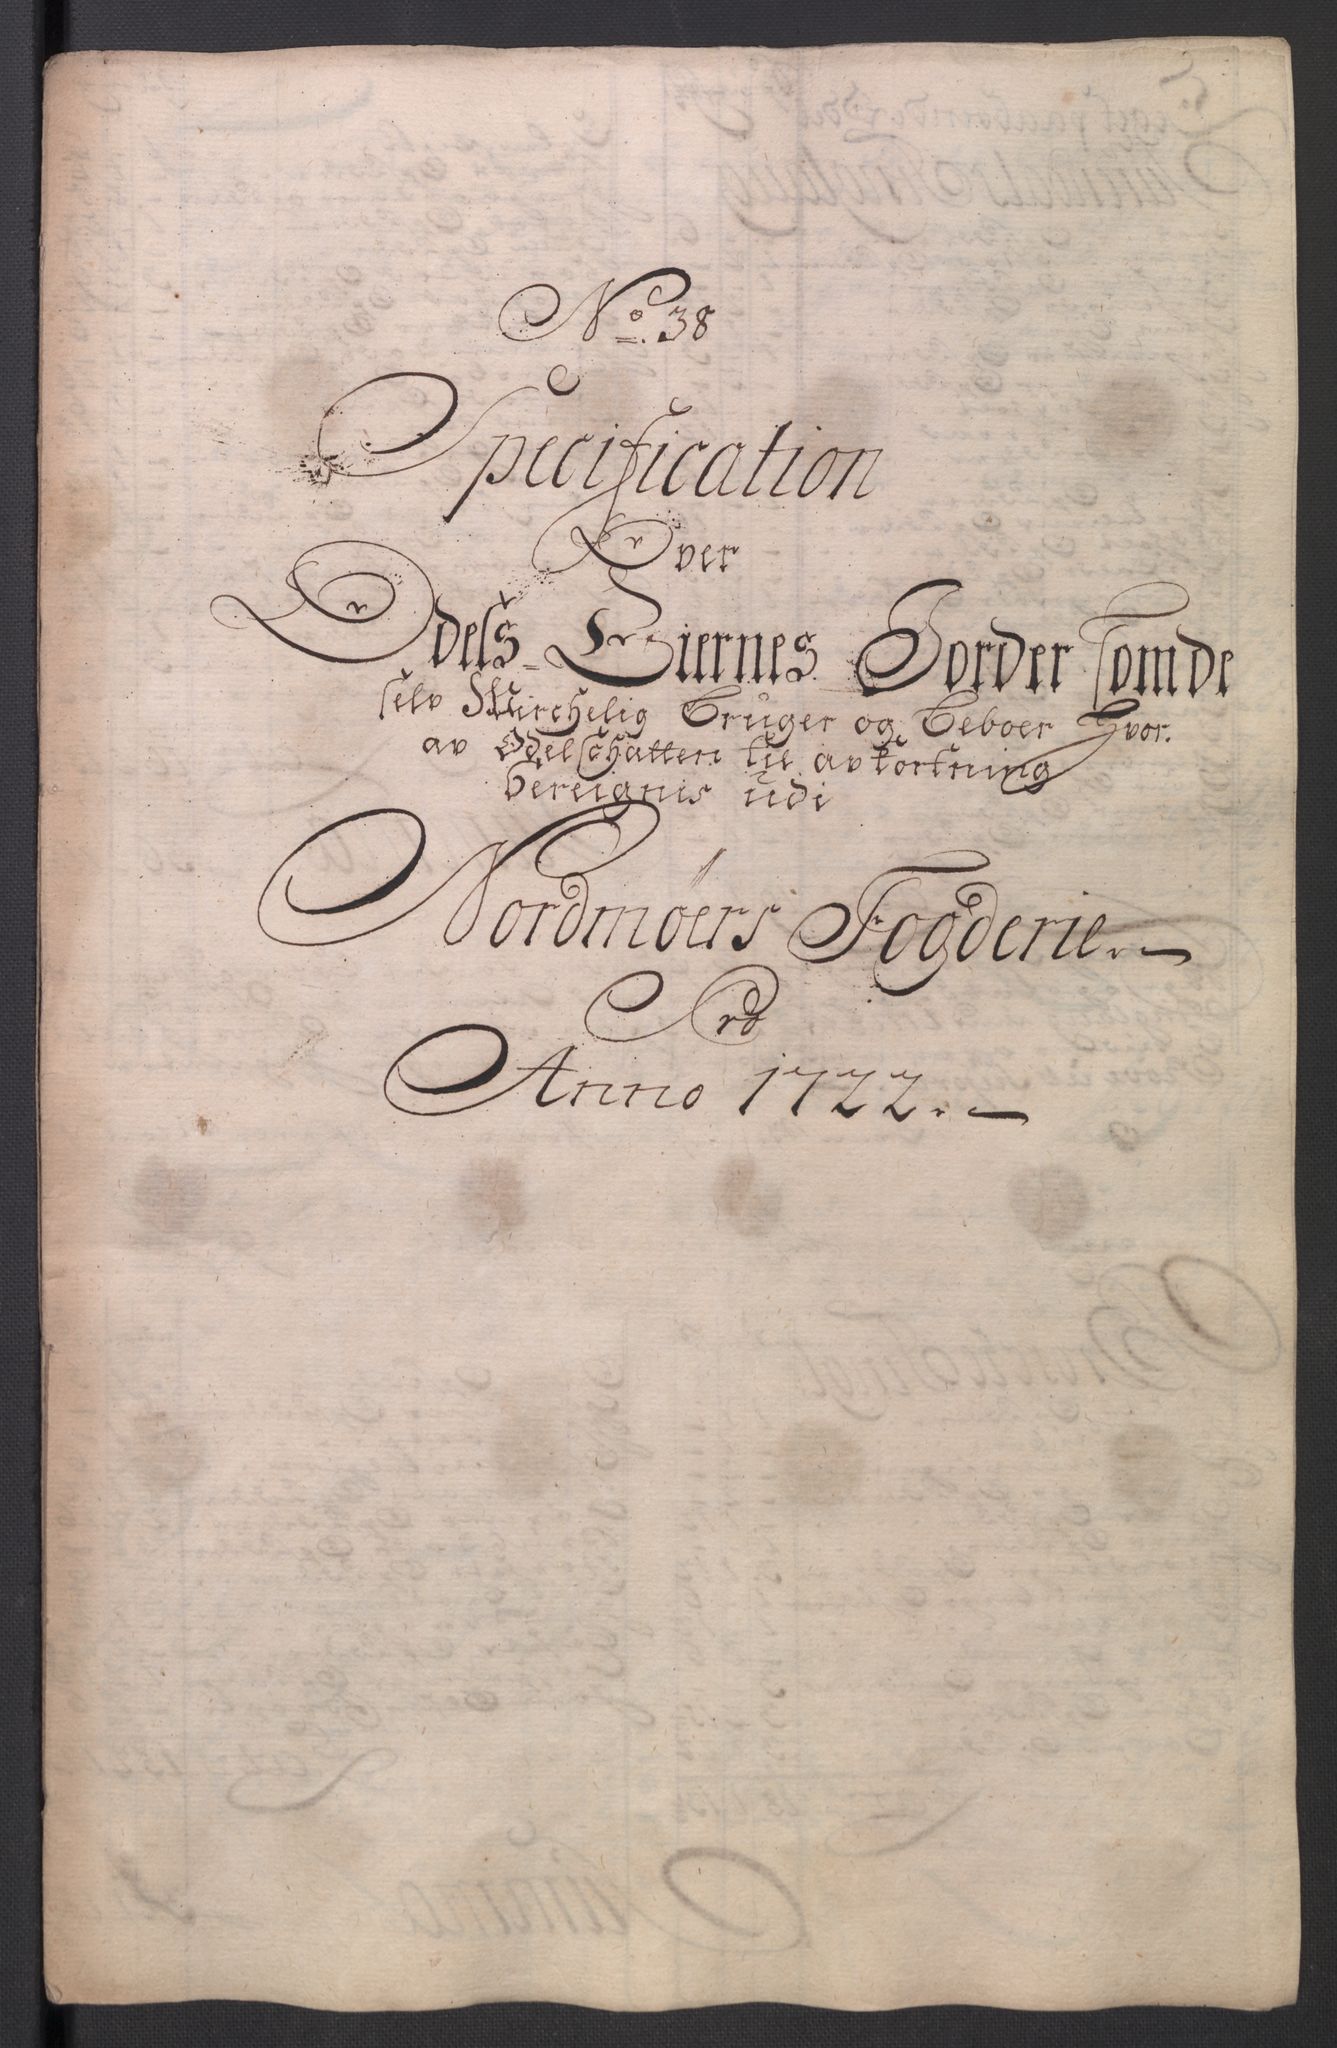 No. 38
Specification
Over
Odels Eiernes Jorder som de
selv Wirchelig Bruger og Beboer Hvor
av Odelschatten til avkortning
bereignis udi
Nordmøers Fogderie
Pro
Anno 1722.